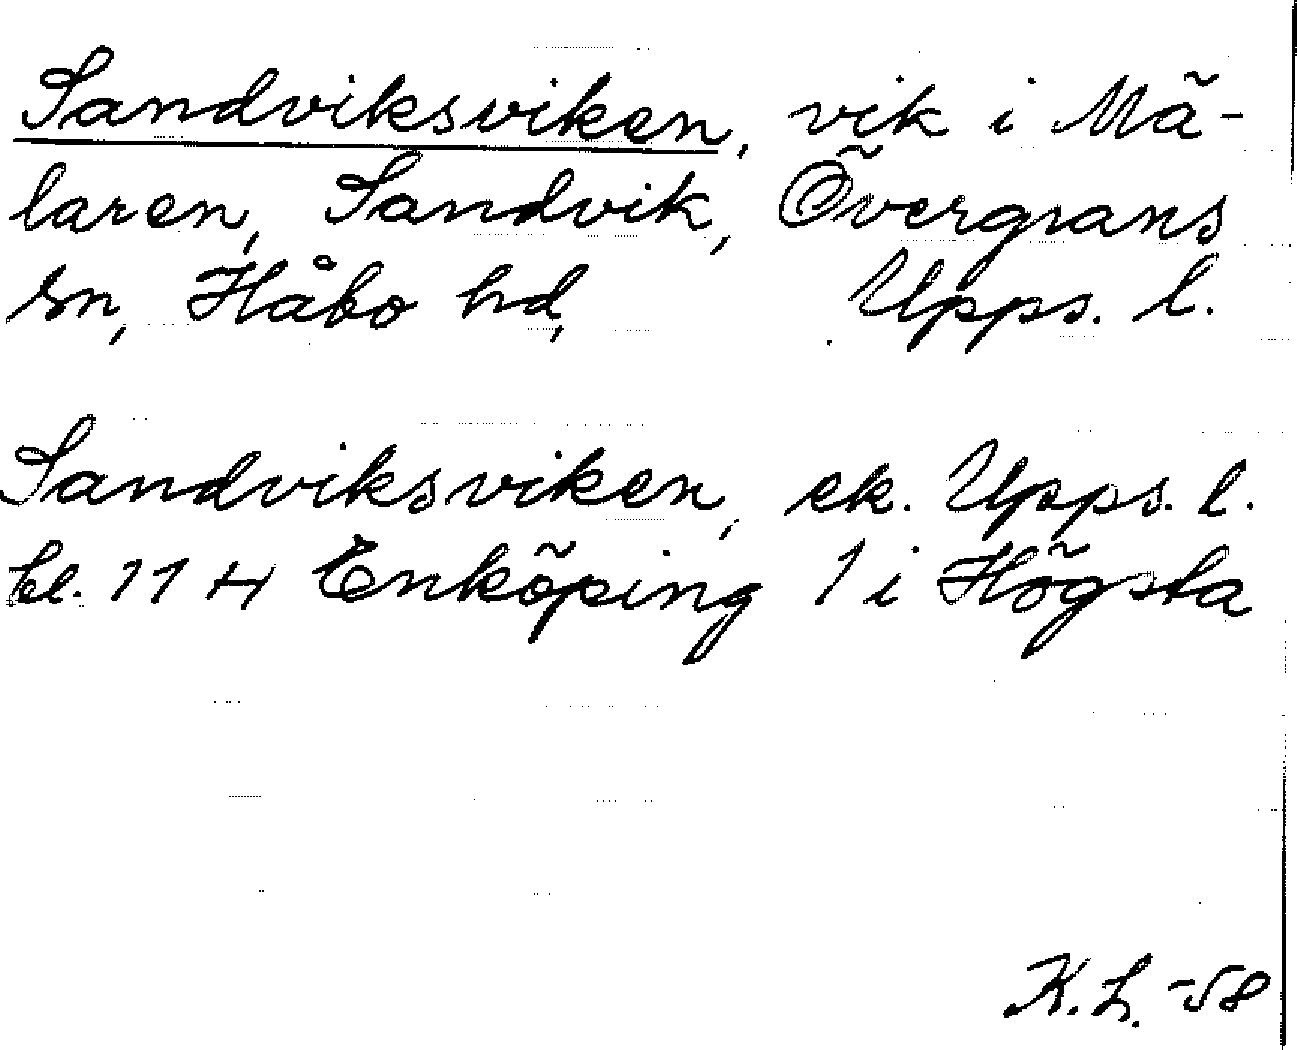 Sandviksviken, vik i Mä-
laren, Sandvik, Övergrans
sn, Håbo hd, Upps. l.
Sandviksviken, ek. Upps. l.
bl. 11 H Enköping 1 i Högsta
K.L. -58